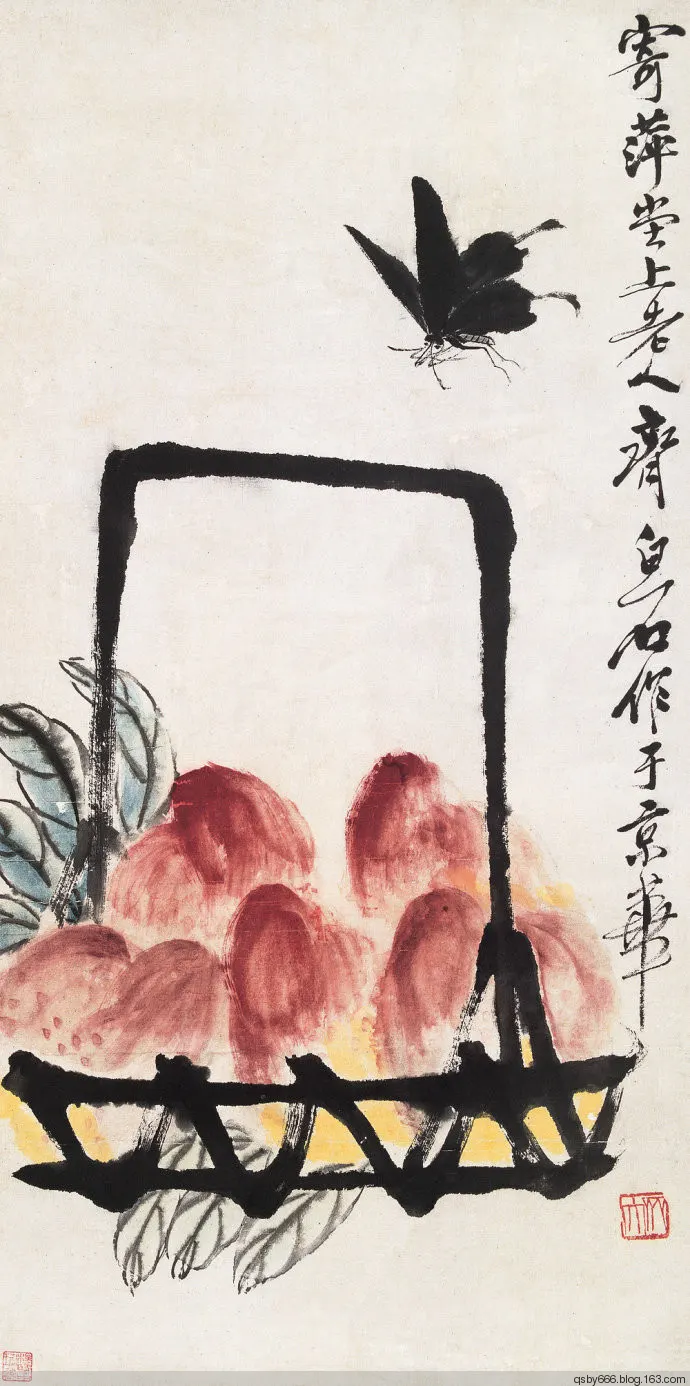 寄萍堂上老人齊白石作于京華
qsby666.blog.163.com